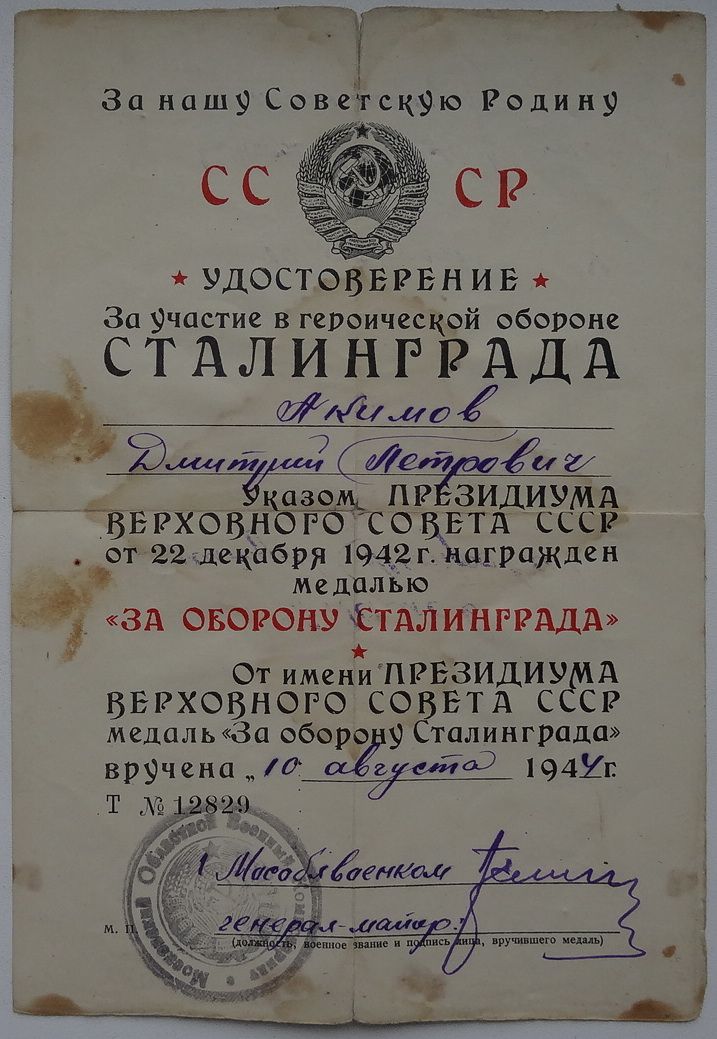 За нашу Советскую Родину
СССР
УДОСТОВЕРЕНИЕ
За участие в героической обороне
СТАЛИНГРАДА
Акимов
Дмитрий Петрович
Указом ПРЕЗИДИУМА
ВЕРХОВНОГО СОВЕТА СССР
от 22 декабря 1942 г. награжден
медалью
«ЗА ОБОРОНУ СТАЛИНГРАДА»
От имени ПРЕЗИДИУМА
ВЕРХОВНОГО СОВЕТА СССР
медаль «За оборону Сталинграда»
вручена „10 августа 1944 г.
Т № 12829
Мособлвоенком
М. П. генерал-майор
(должность, военное звание и подпись лица, вручившего медаль)
Московский Областной Военный Комиссариат